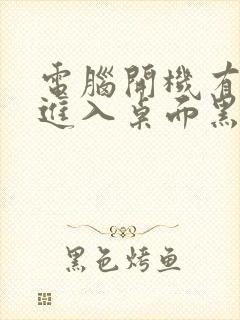 電腦開機有
進入桌面黑
黑色烤鱼